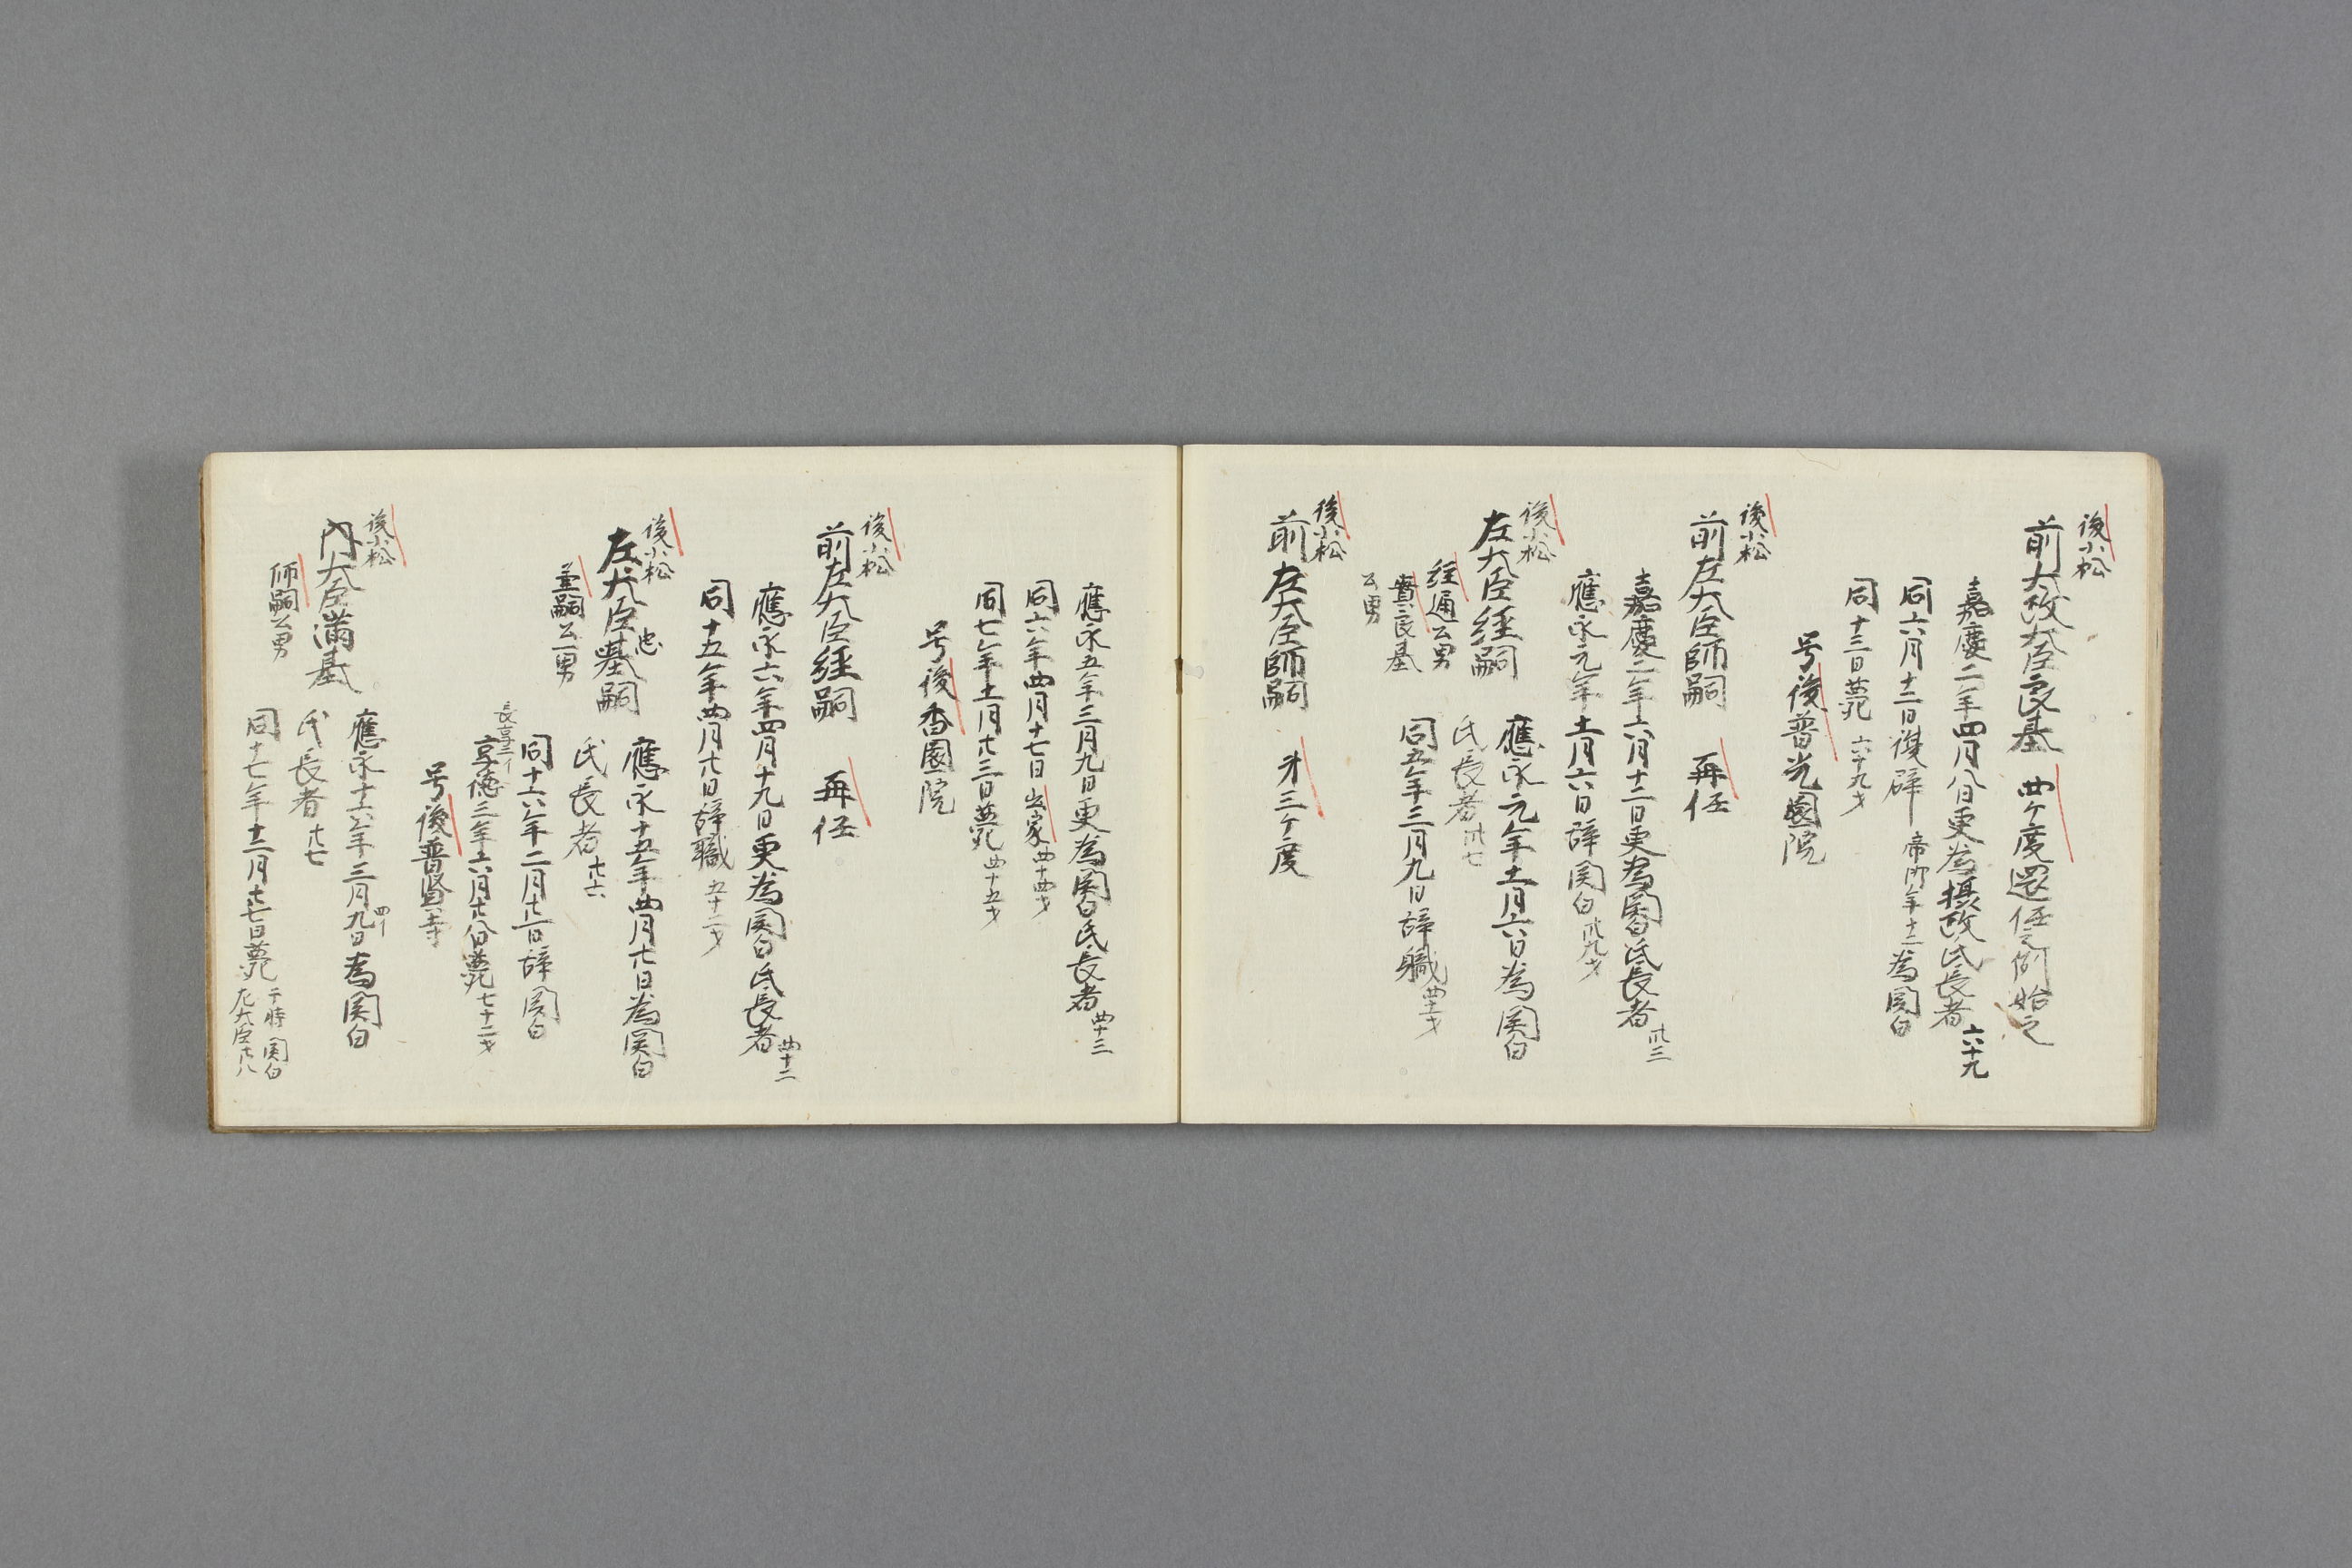 後小松
前大政大臣良基 四ケ度還任之例始之
嘉慶二年四月八日更為摂政氏長者 六十九
同六月十二日復辟 帝御年十二為関白
同十三日薨 六十九才
号後普光園院
後小松
前左大臣師嗣 再任
嘉慶二年六月十二日更為関白氏長者 卅三
應永元年十一月六日辞関白 卅九才
後小松
左大臣経嗣
経通公男
實良基
公男
應永元年十一月六日為関白
氏長者 卅七
同五年三月九日辞職 四十一才
後小松
前左大臣師嗣 才三ケ度
應永五年三月九日更為関白氏長者 四十三
同六年四月十七日出家 四十四才
同七年十一月廿三日薨 四十五才
号後香園院
後小松
前左大臣経嗣 再任
應永六年四月十九日更為関白氏長者 四十二
同十五年四月廿日辞職 五十一才
後小松
左大臣基嗣
忠
公男
應永十五年四月廿日為関白
氏長者 廿六
同十六年二月廿一日辞関白
長享二イ
享徳三年十六月廿八日薨 七十二才
号後普賢寺
後小松
内大臣満基
師嗣公男
應永十六年三月九日為関白
四イ
氏長者 廿七
同十七年十二月廿七日薨 于時関白
左大臣廿八